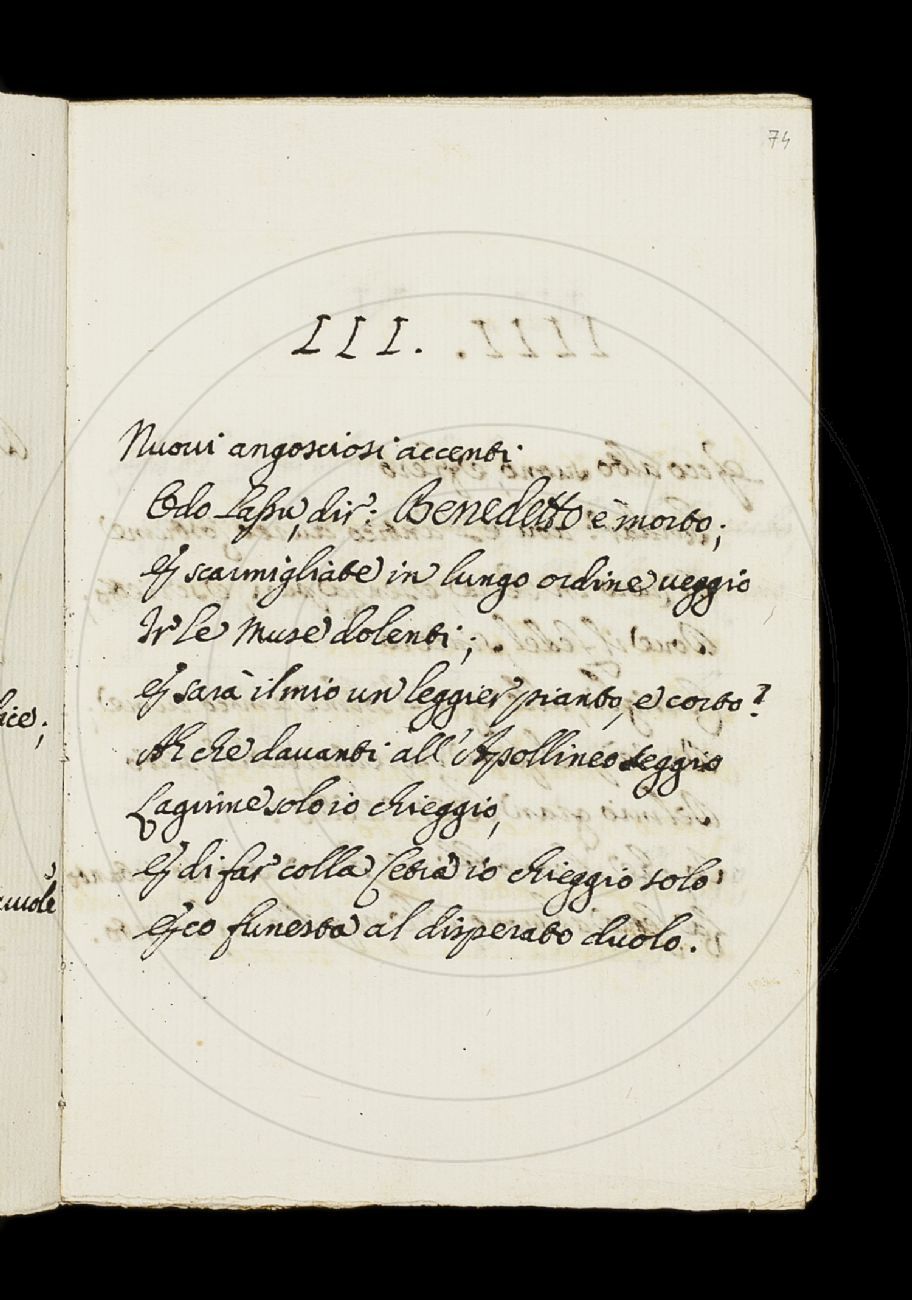 74
III.
Nuovi angosciosi accenti
Odo lassù, dir: Benedetto è morto;
E scarmigliate in lungo ordine veggio
Ir le Muse dolenti;
E sarà il mio un leggier pianto, e corto?
Ah che davanti all'Apollineo seggio
Lagrime solo io chieggio,
E di far colla Cetra io chieggio solo
Eco funesta al disperato duolo.